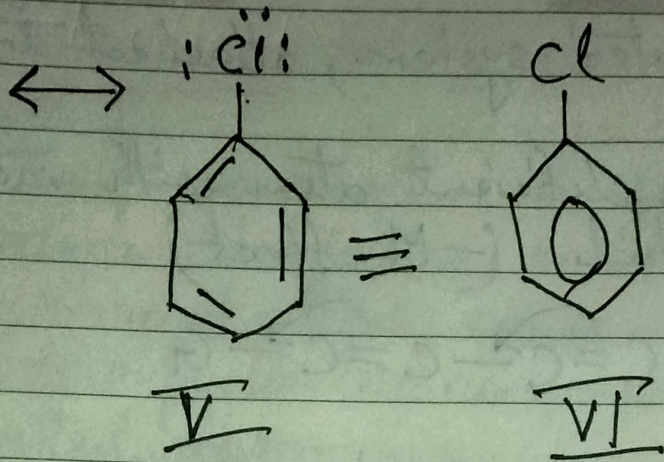 :C̈l: Cl
V VI